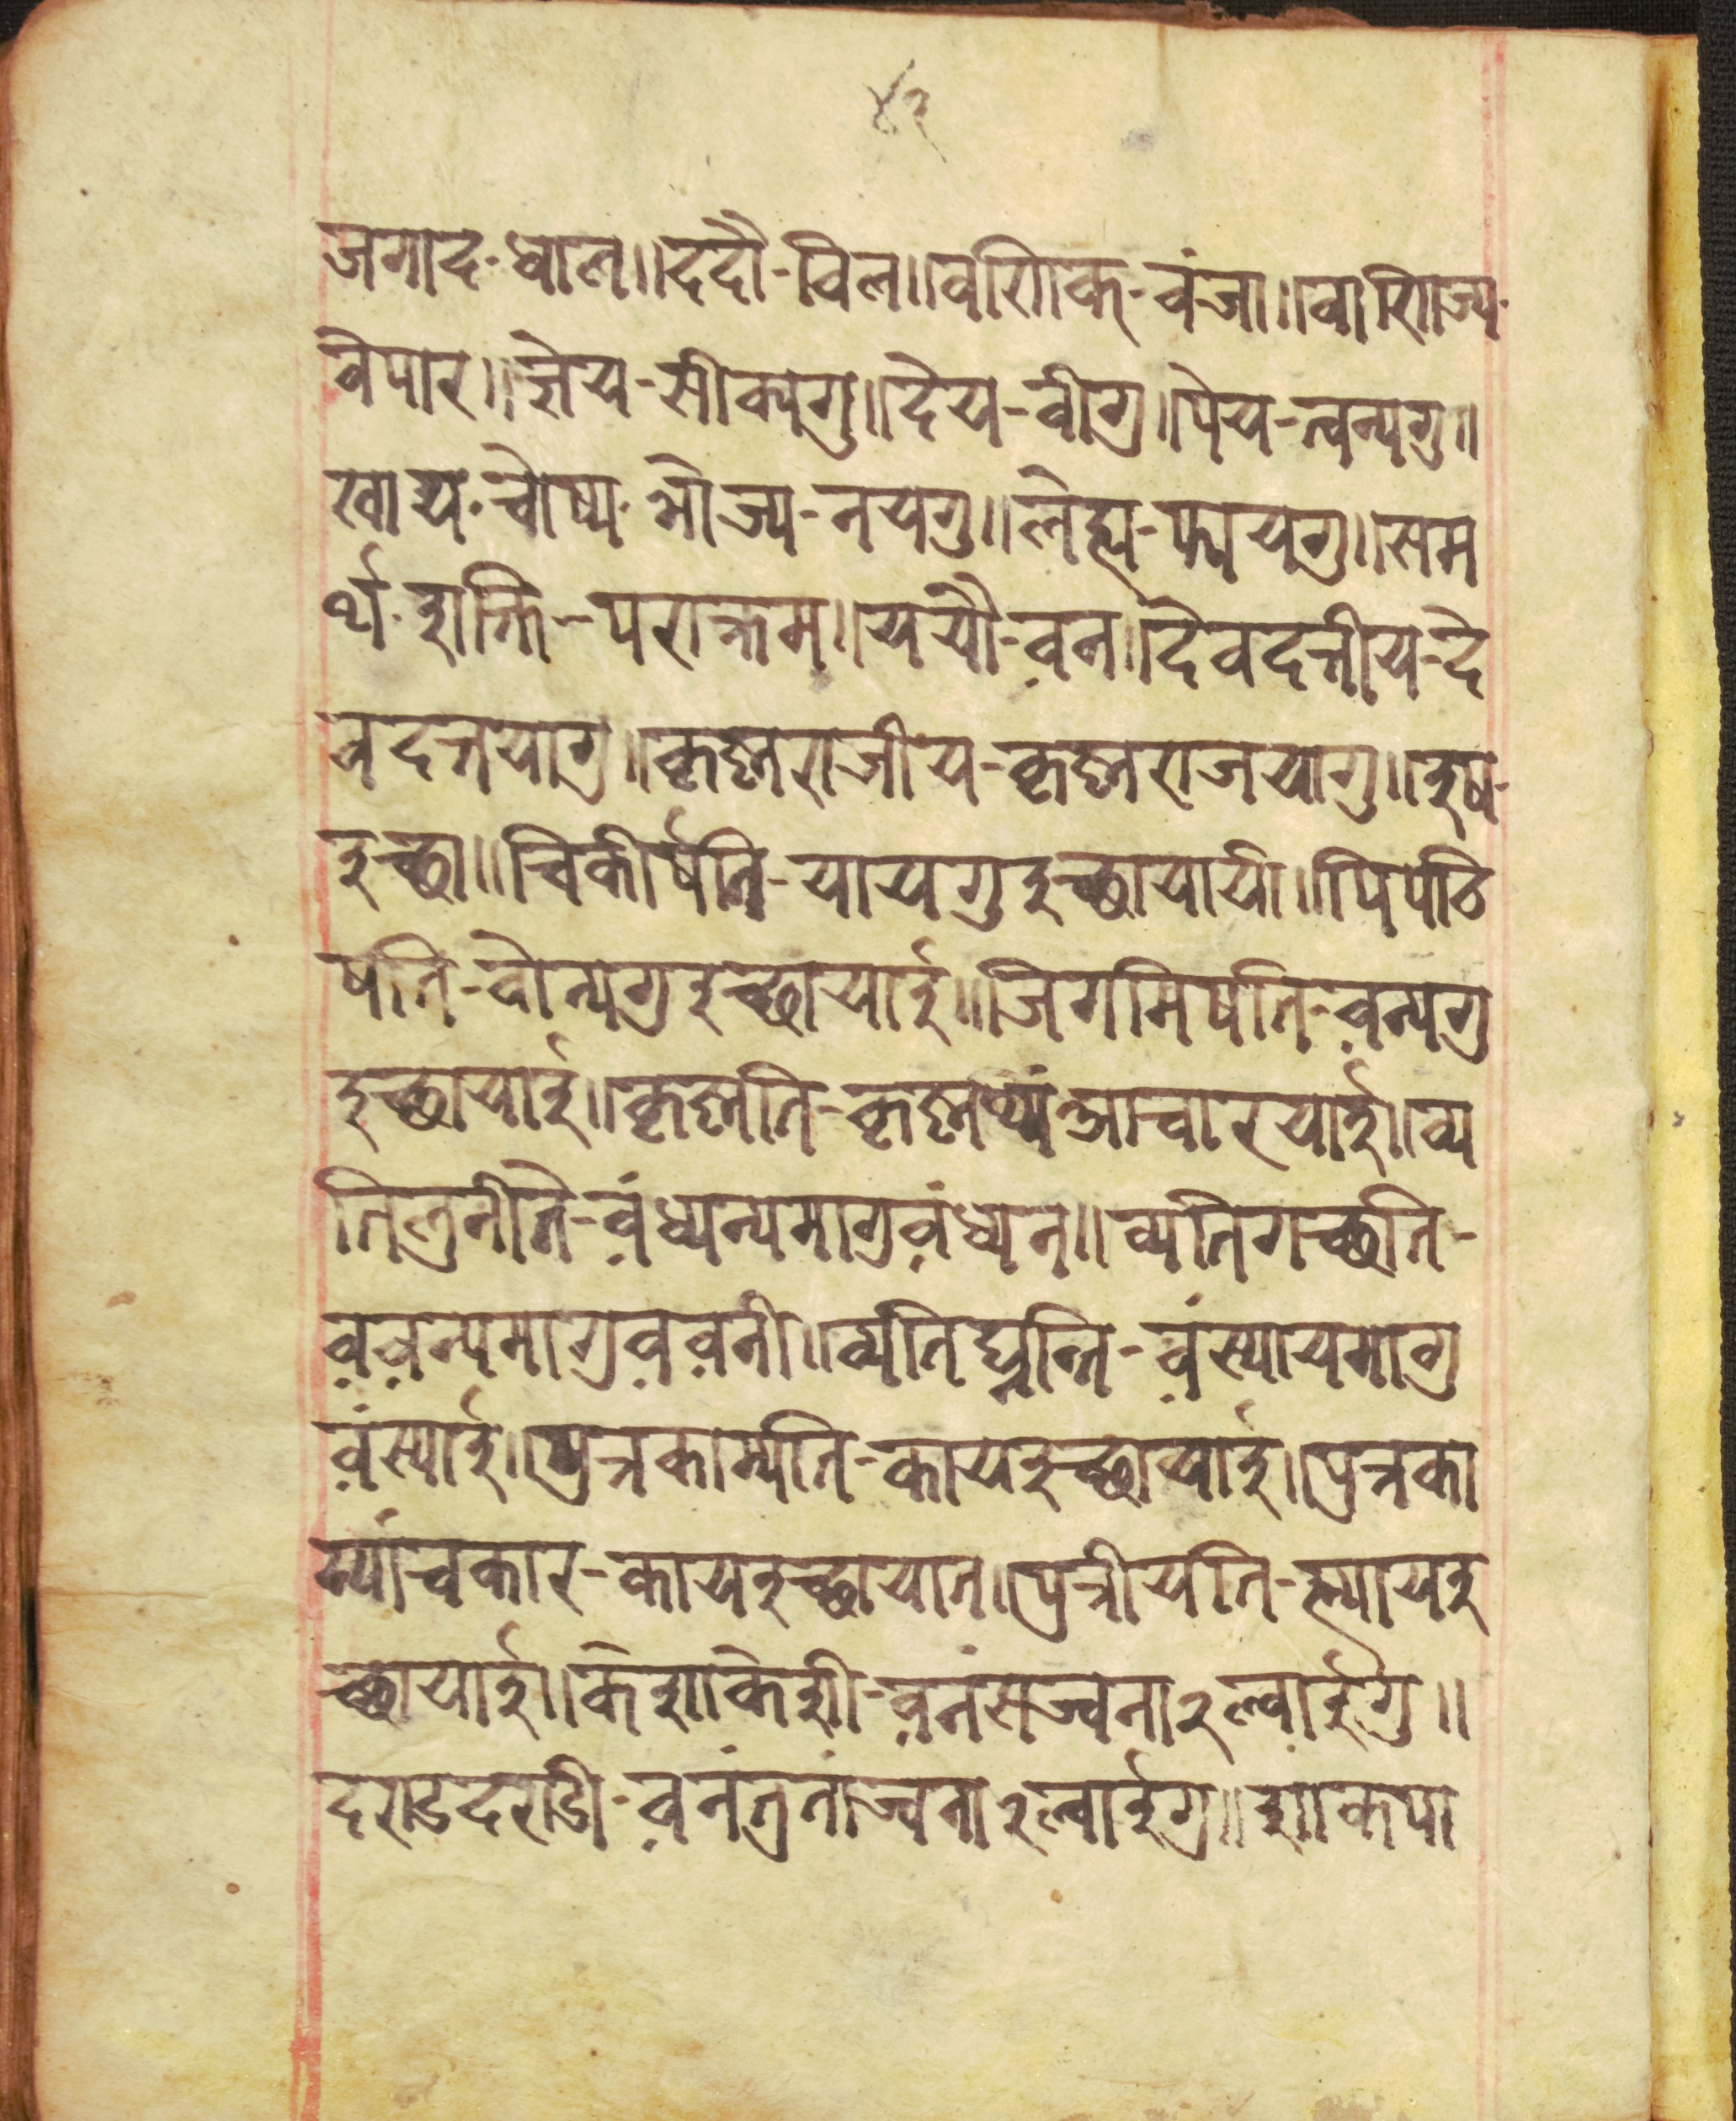 ४२
जगाद-धाल॥ददौ-विल॥वणिक्-वंजा॥वाणिज्य-
वेपार॥ज्ञेय-सीक्यगु॥देय-वीगु॥पेय-त्वन्यगु॥
खाद्य-चोष्य-भोज्य-नयगु॥लेह्य-फ्यायगु॥सम
र्थ-शक्ति-पराक्रम॥ययौ-व़न॥देवदत्तीय-दे
वदत्तयागु॥कृष्णराजीय-कृष्णराजयागु॥इष-
इच्छा॥चिकीर्षति-यायगुइच्छायायी॥पिपठि
षति-वोन्यगुइच्छायाई॥जिगमिषति-व़न्यगु
इच्छायाई॥कृष्णति-कृष्णथ्यंआचारयाई॥व्य
तिलुनीते-व़ंध्यन्यमागुव़ंध्यन॥व्यतिगच्छति-
व़व़न्यमागुव़व़नी॥व्यतिघ्नन्ति-व़ंस्यायमागु
व़ंस्याई॥पुत्रकाम्यति-कायइच्छायाई॥पुत्रका
म्यांचकार-कायइच्छायात॥पुत्रीयति-ह्म्यायइ
च्छायाई॥केशाकेशी-व़नंसज्वनाऽल्वाईगु॥
दण्डादण्डी-व़नंतुतांज्वनाऽल्वाईगु॥शाकपा